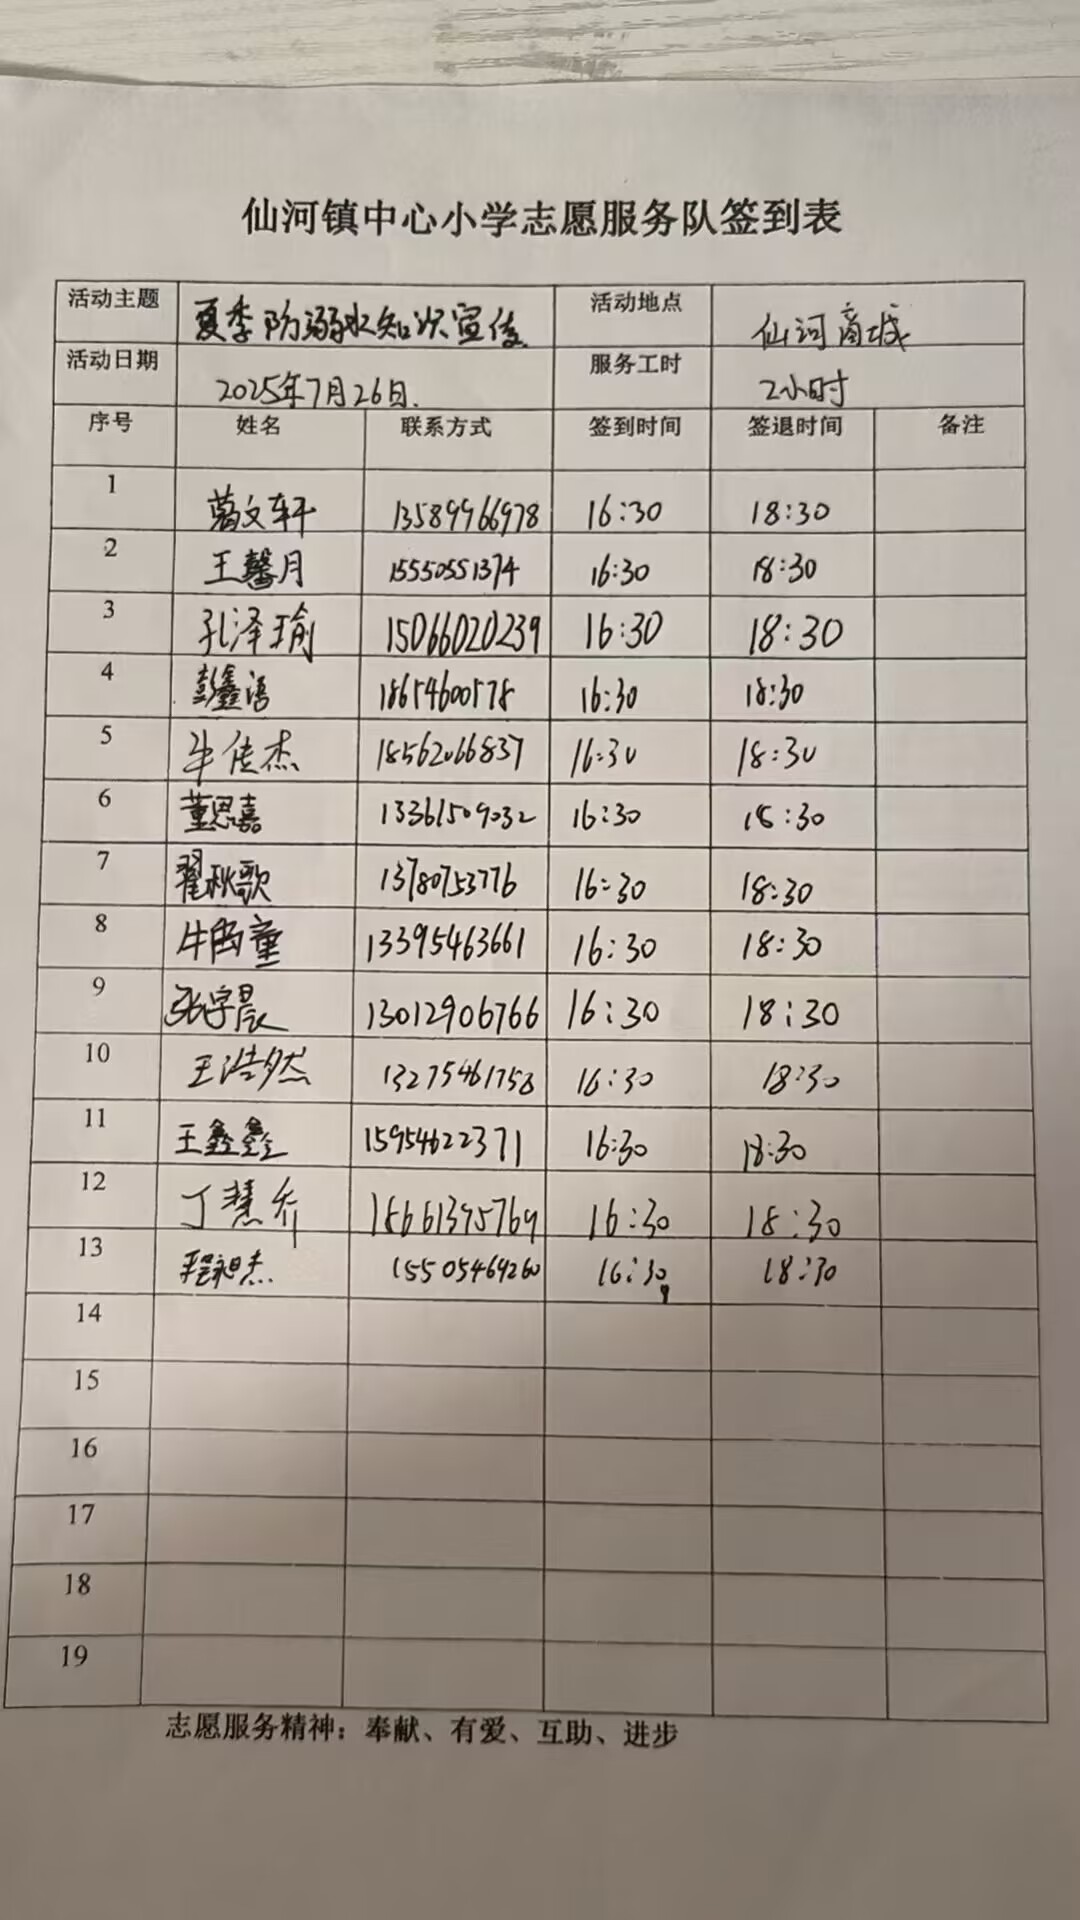 仙河镇中心小学志愿服务队签到表
活动主题 夏季防溺水知识宣传 活动地点 仙河商城
活动日期 2025年7月26日. 服务工时 2小时
序号 姓名 联系方式 签到时间 签退时间 备注
1 葛文轩 13589966978 16:30 18:30
2 王馨月 15550551374 16:30 18:30
3 孔泽瑜 15066020239 16:30 18:30
4 彭鑫语 18654600578 16:30 18:30
5 牛佳杰 18562066837 16:30 18:30
6 董思嘉 13361509032 16:30 18:30
7 翟秋歌 13780753776 16:30 18:30
8 牛雨童 13395463661 16:30 18:30
9 张宇晨 13012906766 16:30 18:30
10 王浩然 13275461758 16:30 18:30
11 王鑫鑫 15954622371 16:30 18:30
12 丁慧乔 18661395769 16:30 18:30
13 15505469260 16:30 18:30
14
15
16
17
18
19
志愿服务精神：奉献、有爱、互助、进步